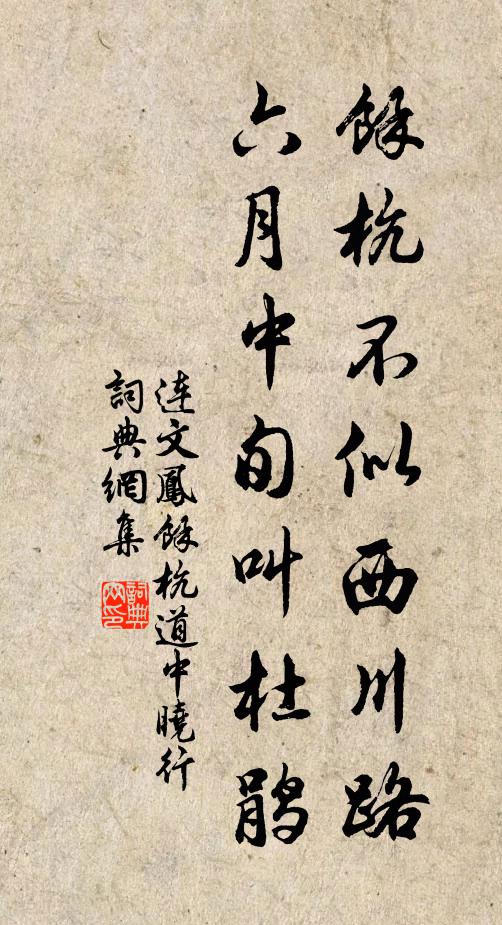 餘杭不似西川路
六月中旬叫杜鵑
连文鳳餘杭道中曉行
詞典網集
詞典
网印